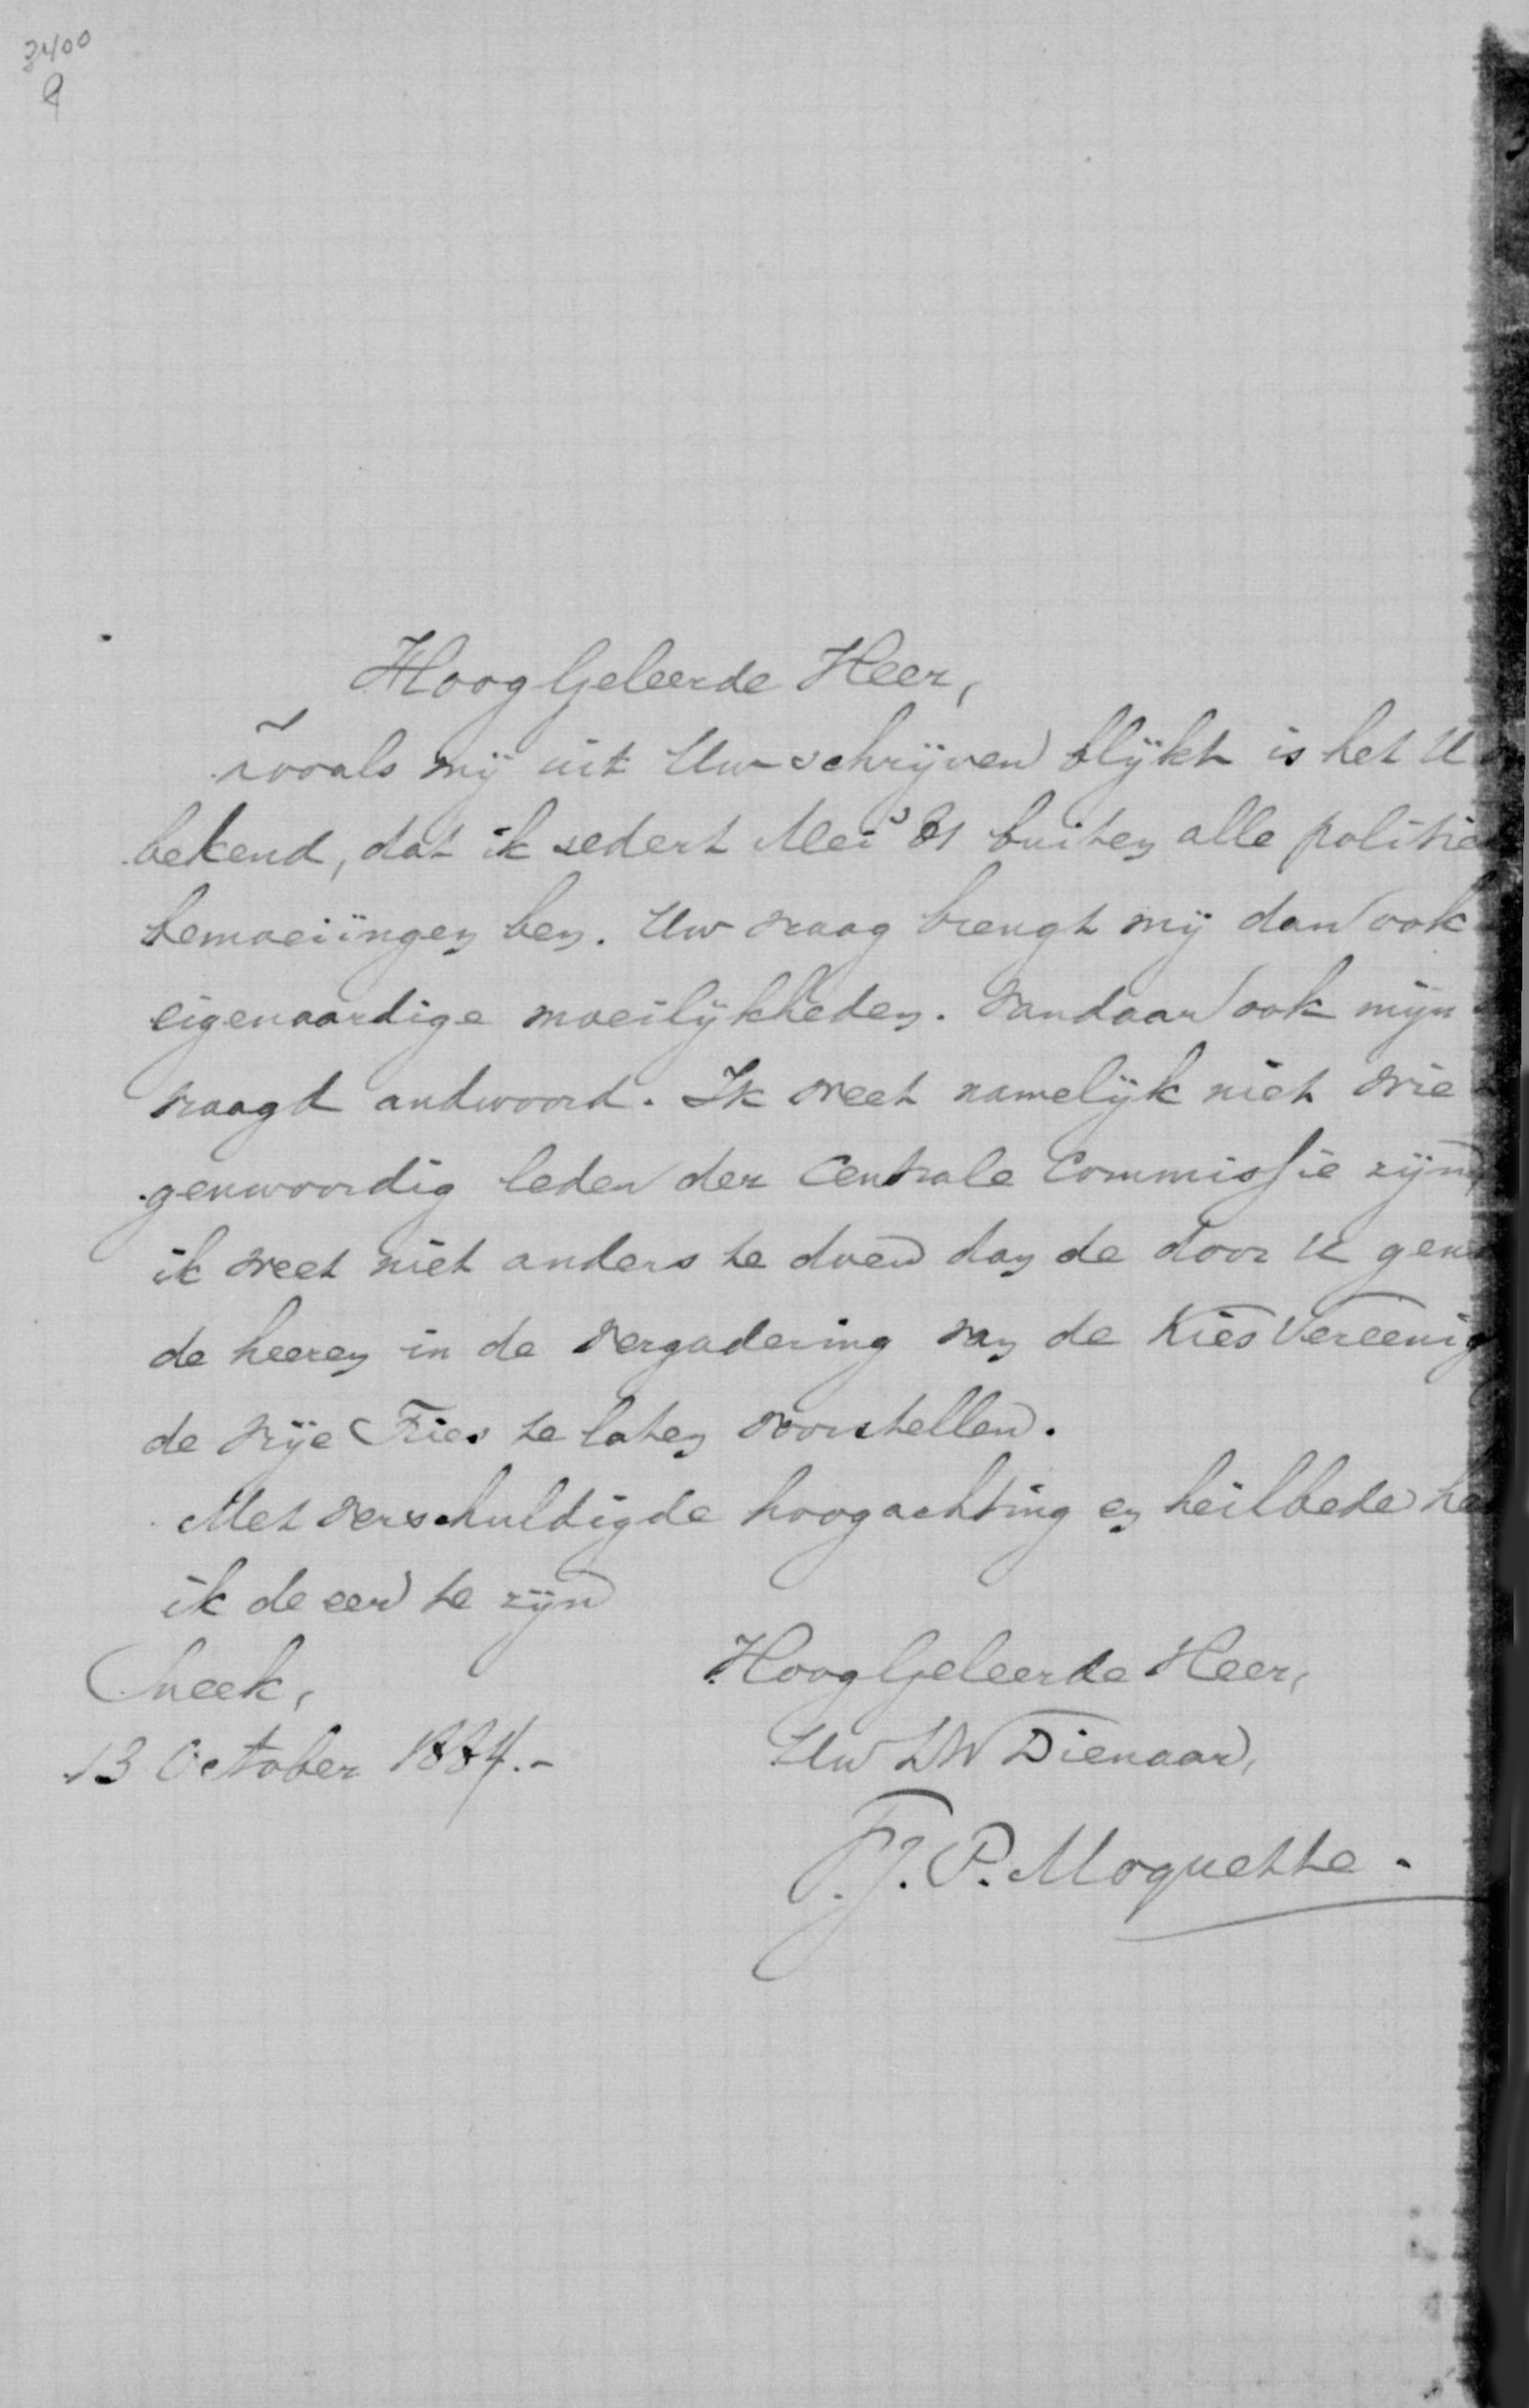 3400
9
HoogGeleerde Heer,
Zooals mij uit Uw schrijven blijkt is het U
bekend, dat ik sedert Mei '81 buiten alle politie
bemoeiingen ben. Uw vraag brengt mij dan ook
eigenaardige moeilijkheden. Vandaar ook mijn
vraagd andwoord. Ik weet namelijk niet wie
genwoordig leden der Centrale Commissie zijn
ik weet niet anders te doen dan de door U gen
de heeren in de vergadering van de KiesVereenig
de vrije Fries te laten voorstellen.
Met verschuldigde hoogachting en heilbede he
ik de eer te zijn
Sneek,
13 October 1884.-
HoogGeleerde Heer,
Uw DW Dienaar,
F.J.P. Moquette.